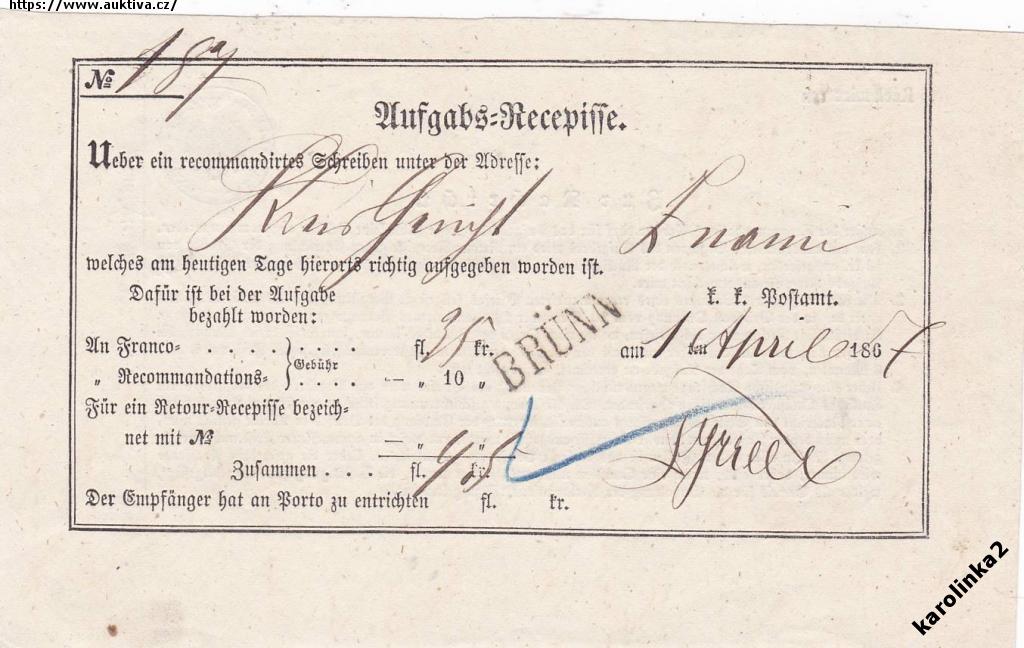 https://www.auktiva.cz/
№ 187
Aufgabs-Recepisse.
Ueber ein recommandirtes Schreiben unter der Adresse:
Kreis Gericht Znaim
welches am heutigen Tage hierorts richtig aufgegeben worden ist.
Dafür ist bei der Aufgabe
bezahlt worden:
k. k. Postamt.
An Franco- . . . . . . . . . fl. 35 kr.
Gebühr
„ Recommandations- . . . . — „ 10 „
BRÜNN
am 1 ten April 1867
Für ein Retour-Recepisse bezeich-
net mit № — „ „
Zusammen . . . fl. 45 kr.
Der Empfänger hat an Porto zu entrichten fl. kr.
karolinka2